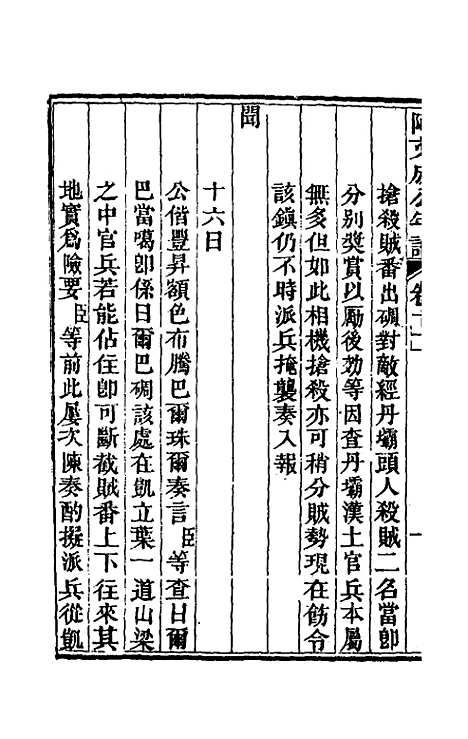 阿文成公年譜 卷十
搶殺賊番出碉對敵經丹壩頭人殺賊二名當卽
分别奬賞以厲後効等因查丹壩漢土官兵本屬
無多但如此相機搶殺亦可稍分賊勢現在飭令
該鎮仍不時派兵掩襲奏入報
聞
十六日
公偕豐昇額色布騰巴爾珠爾奏言臣等查日爾
巴當噶卽係日爾巴碉該處在凱立葉一道山梁
之中官兵若能佔住卽可斷截賊番上下往來其
地實爲險要臣等前此屢次陳奏酌擬派兵從凱